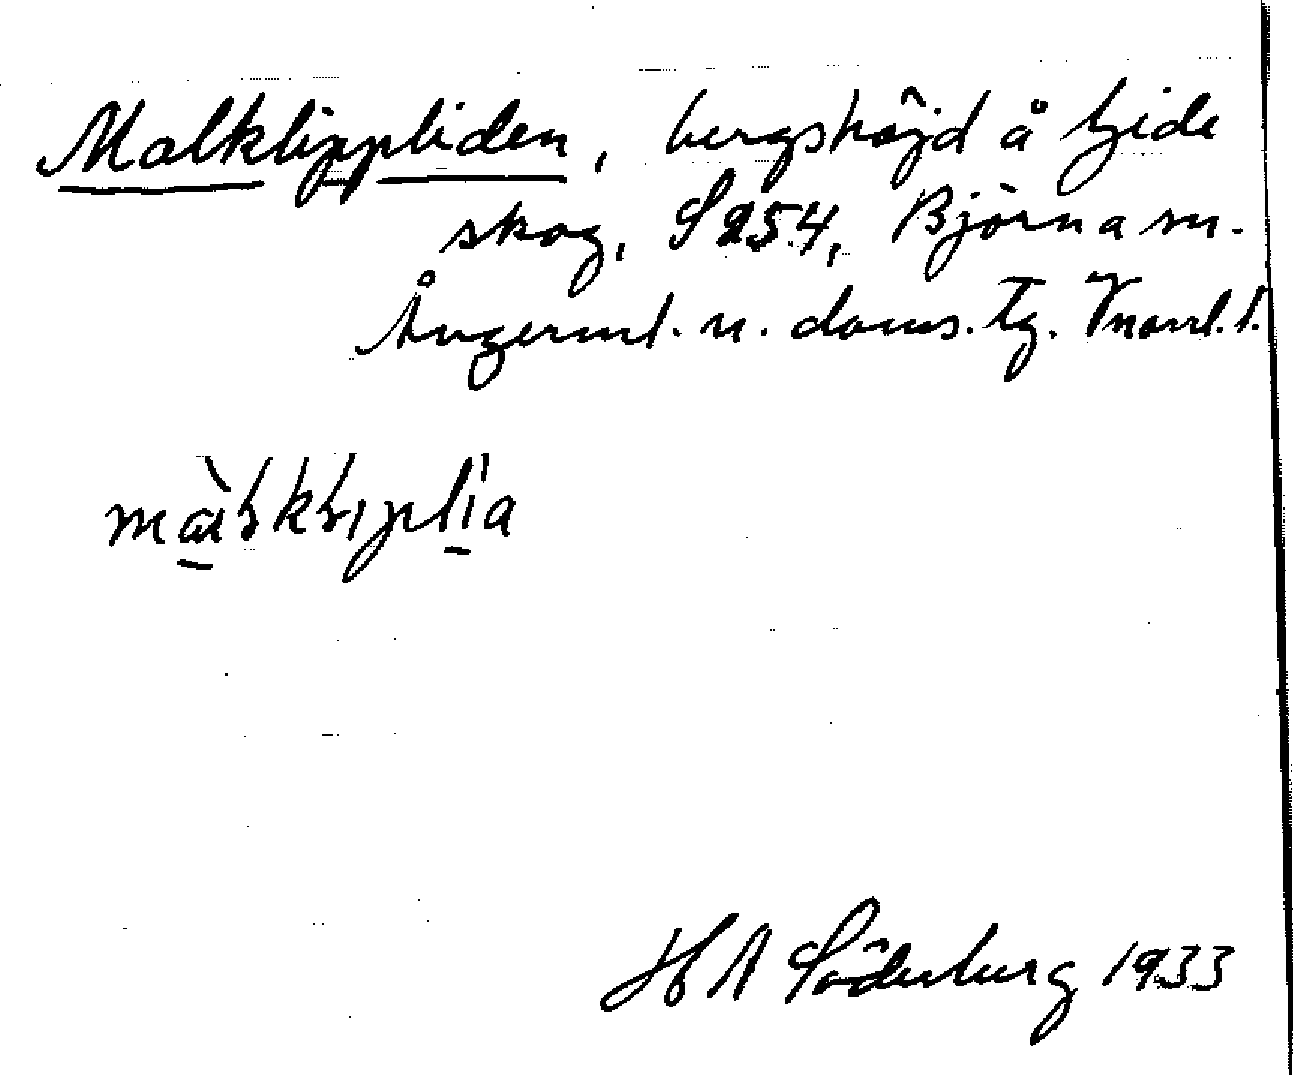 Malklippliden, bergshöjd å Gide
skog, S 254, Björna sn.
Ångerml. n. doms. tg. Vnorrl. l.
H A Söderberg 1933